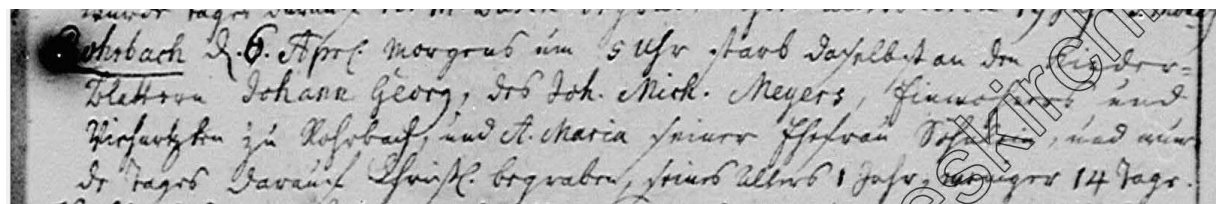 wurde tages darauf
Rohrbach d. 6. Apr. morgens um 5 Uhr starb daselbst an den Kinder=
blattern Johann Georg, des Joh. Mich. Meyers, Einwohners und
Viehartzten zu Rohrbach, und A. Maria seiner Ehefrau Söhnlein, und wur=
de tages darauf Christl. begraben, seines Alters 1 Jahr, weniger 14 Tage.
eskirch